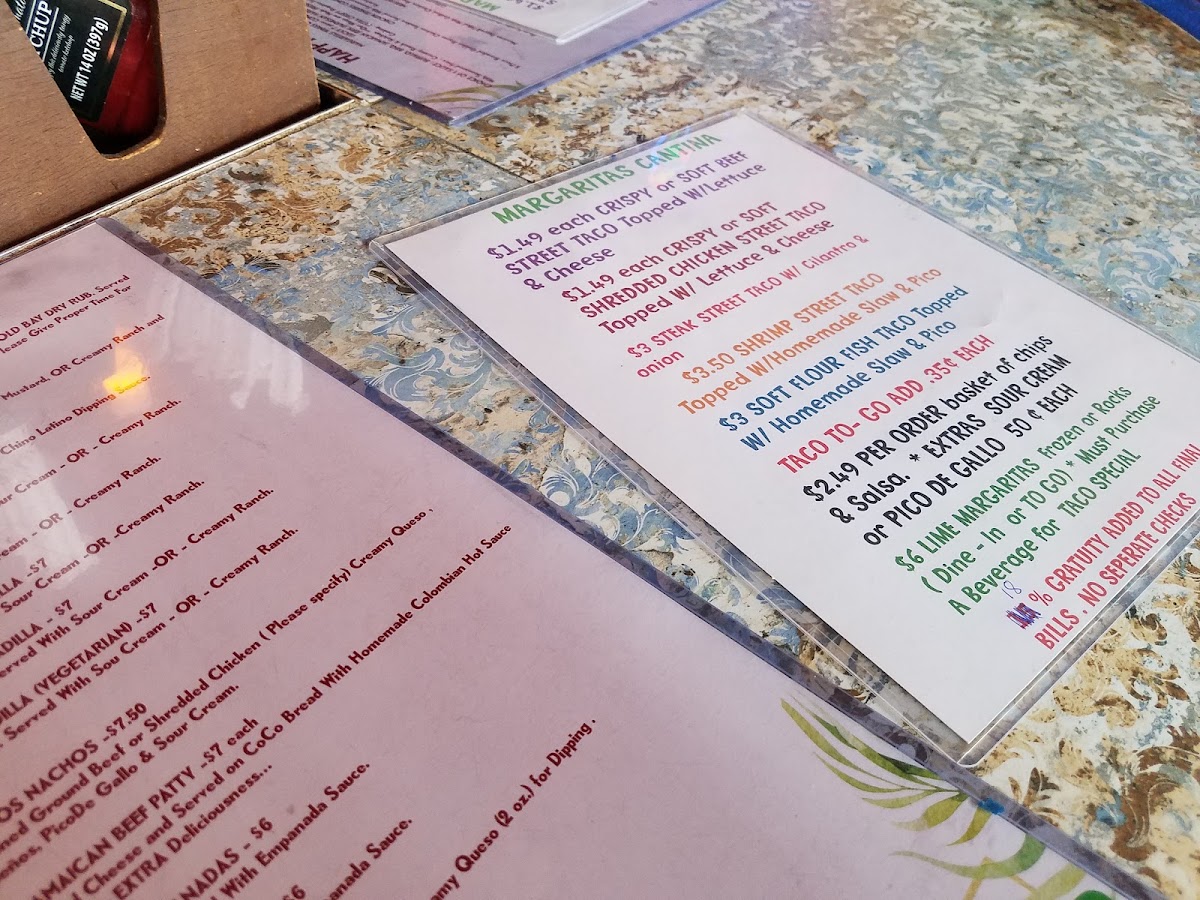 CHUP
NET WT 14 OZ (397g)
MARGARITAS CANTINA
$1.49 each CRISPY or SOFT BEEF
STREET TACO Topped W/Lettuce
& Cheese
$1.49 each CRISPY or SOFT
SHREDDED CHICKEN STREET TACO
Topped W/ Lettuce & Cheese
$3 STEAK STREET TACO W/ Cilantro &
onion
$3.50 SHRIMP STREET TACO
Topped W/Homemade Slaw & Pico
$3 SOFT FLOUR FISH TACO Topped
W/ Homemade Slaw & Pico
TACO TO- GO ADD .35¢ EACH
$2.49 PER ORDER basket of chips
& Salsa. * EXTRAS SOUR CREAM
or PICO DE GALLO 50 ¢ EACH
$6 LIME MARGARITAS frozen or Rocks
( Dine - In or TO GO) * Must Purchase
A Beverage for TACO SPECIAL
18 % GRATUITY ADDED TO ALL FINAL
BILLS . NO SEPERATE CHECKS
OLD BAY DRY RUB. Served
lease Give Proper Time For
Mustard, OR Creamy Ranch and
Chino Latino Dipping Sauce.
ur Cream - OR - Creamy Ranch.
ream - OR - Creamy Ranch.
LLA -$7
Sour Cream -OR -Creamy Ranch.
ADILLA - $7
erved With Sour Cream -OR - Creamy Ranch.
DILLA (VEGETARIAN) -$7
. Served With Sou Cream - OR - Creamy Ranch.
OS NACHOS -$7.50
ned Ground Beef or Shredded Chicken ( Please specify) Creamy Queso ,
eños, PicoDe Gallo & Sour Cream.
AMAICAN BEEF PATTY -$7 each
d Cheese and Served on CoCo Bread With Homemade Colombian Hot Sauce
EXTRA Deliciousness...
NADAS - $6
d With Empanada Sauce.
$6
anada Sauce.
amy Queso (2 oz.) for Dipping .